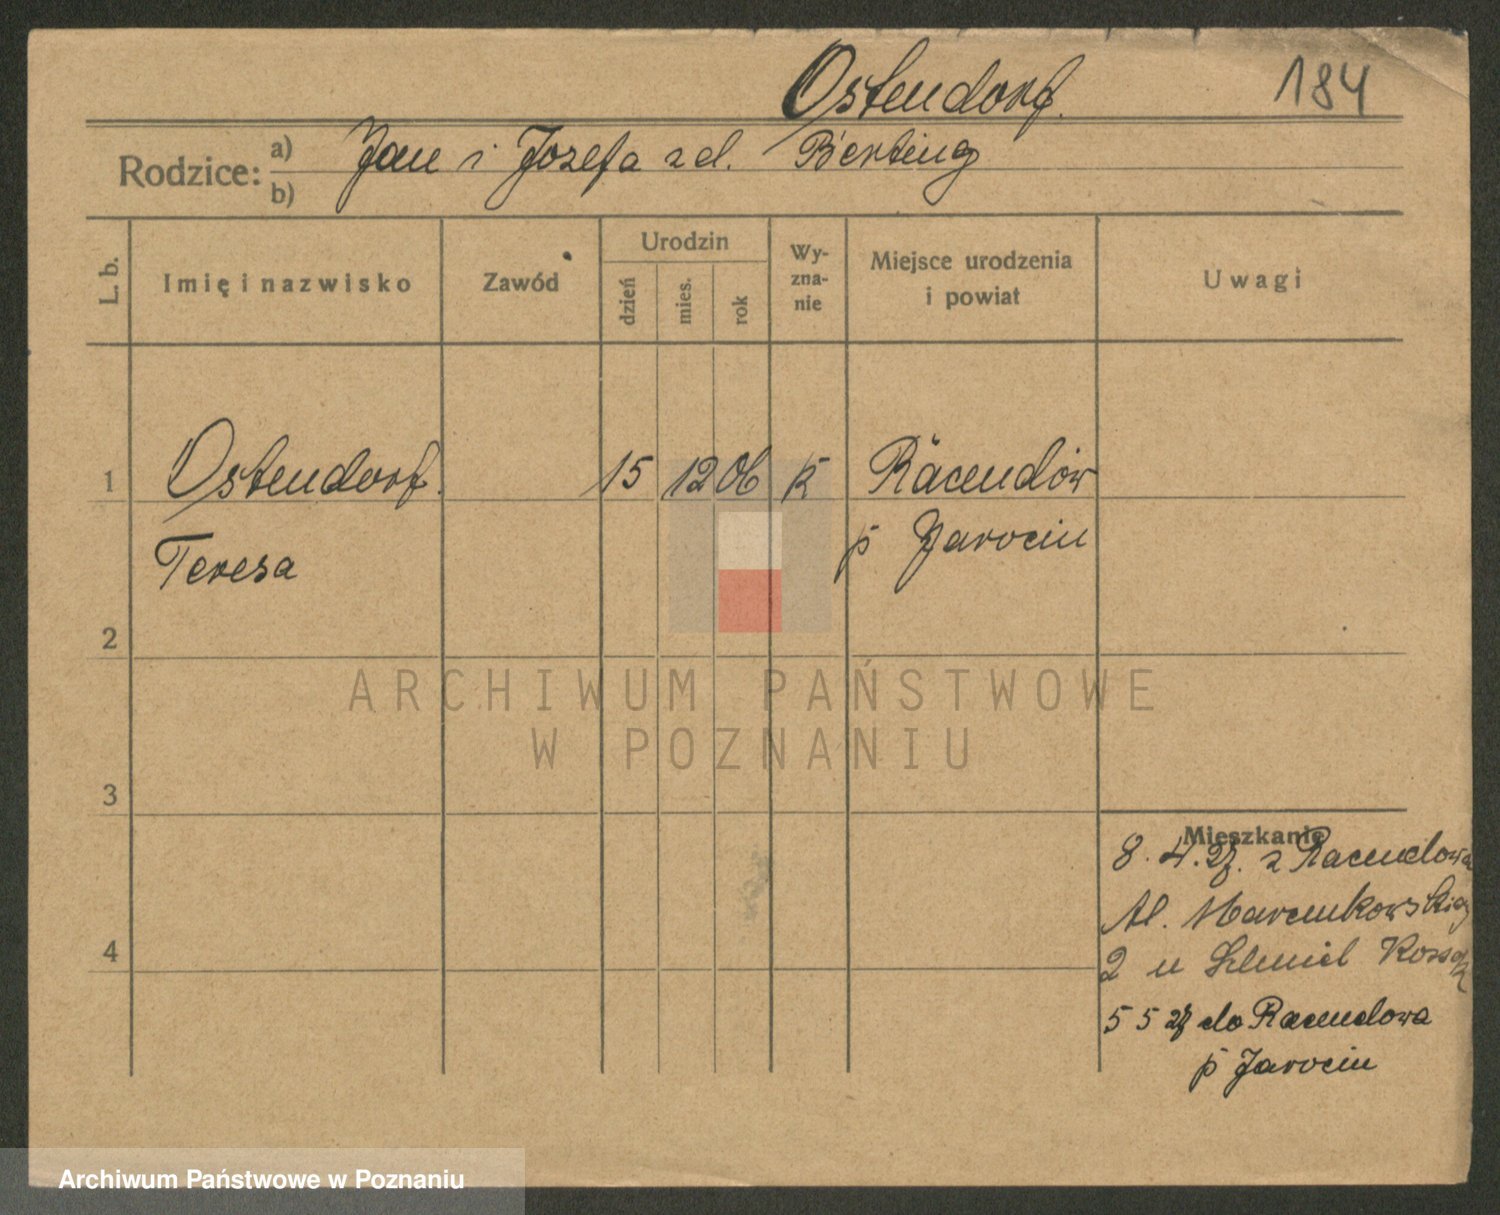 Ostendorf.
184
Rodzice: a) Jan i Józefa zd. Berting
b)
L. b.
Imię i nazwisko
Zawód
Urodzin
dzień
mies.
rok
Wy-
zna-
nie
Miejsce urodzenia
i powiat
Uwagi
1 Ostendorf. 15 12 06 k Racendów
Teresa p Jarocin
2
3
4
Mieszkanie
8. 4. 27. z Racendowa
Al. Marcinkowskieg
2 u
5 5 27 do Racendowa
p Jarocin
ARCHIWUM PAŃSTWOWE
W POZNANIU
Archiwum Państwowe w Poznaniu